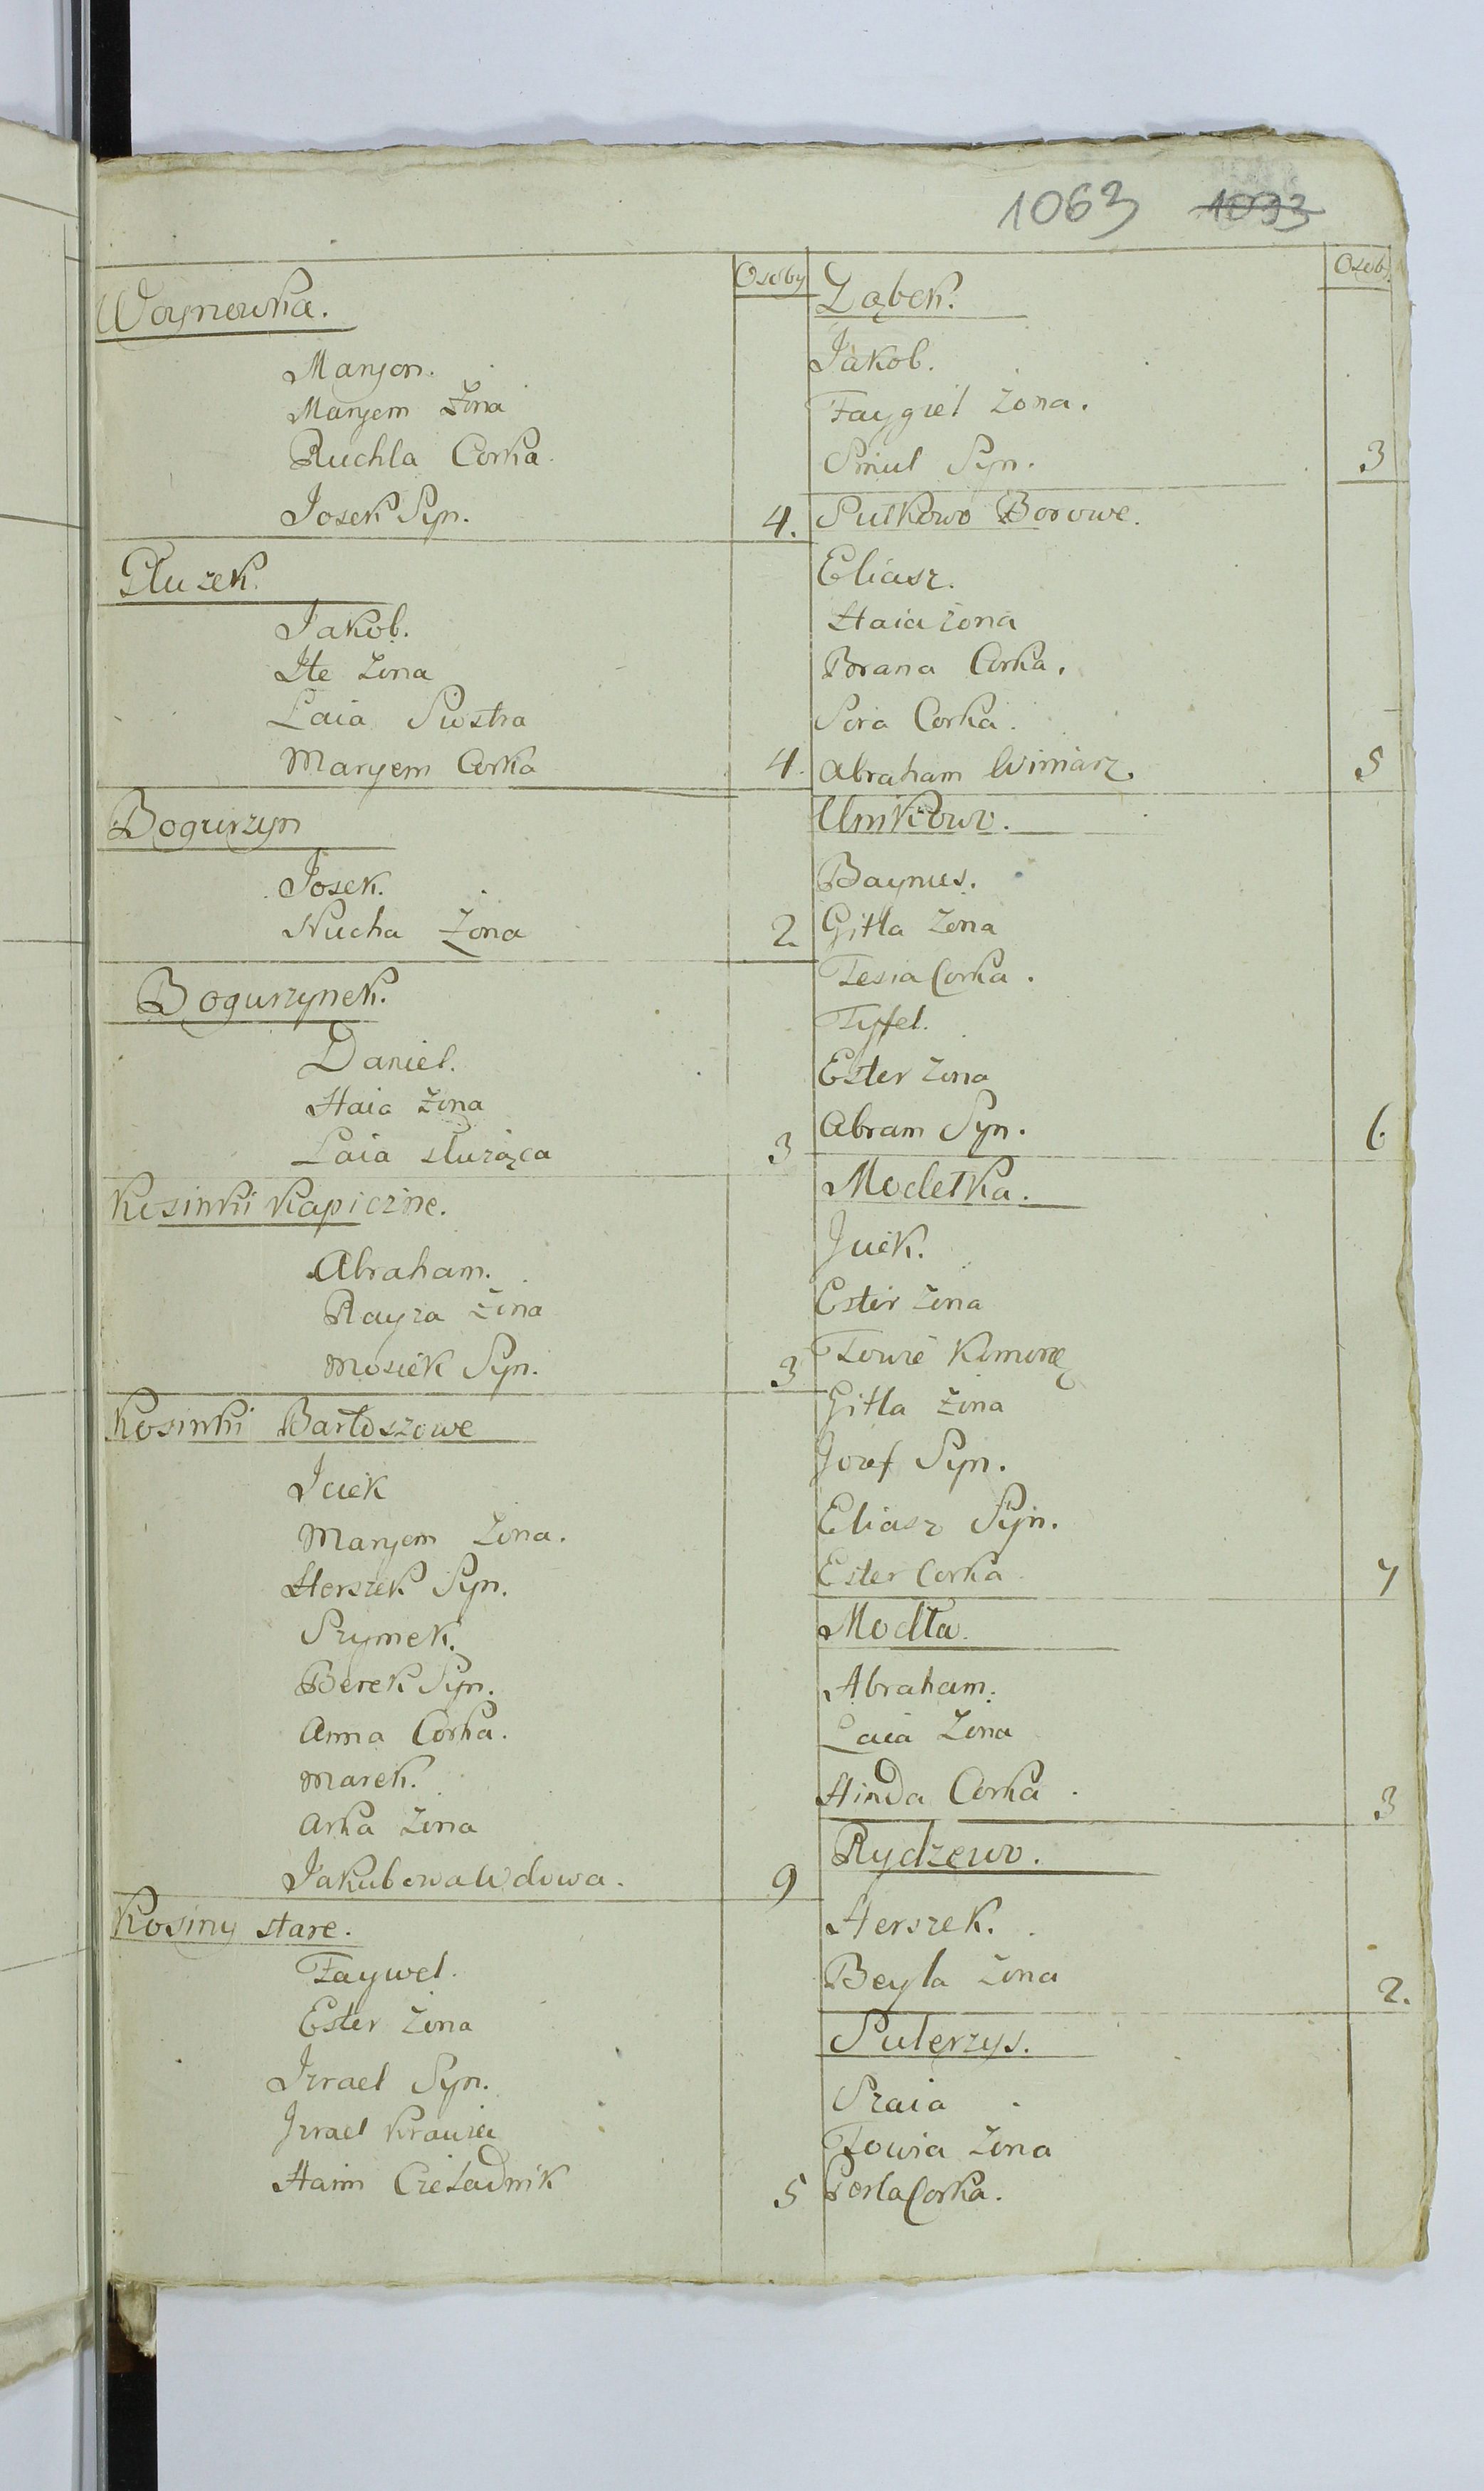 1063 1093
Osoby
Woynowka.
Manjon.
Maryem Żona
Ruchla Corka.
Josek Syn. 4.
Głużek.
Jakob.
Ite Żona
Laia Siostra
Maryem Corka 4.
Bogurzyn
Josek.
Nucha Żona 2.
Bogurzynek.
Daniel.
Haia Żona
Laia służąca 3
Kosinki Kapiczne.
Abraham.
Rayza Żona
Mosiek Syn. 3
Kosinki Bartoszowe
Icek
Maryem Żona.
Herszek Syn.
Szymek.
Berek Syn.
Anna Corka.
Marek.
Arka Żona
Jakubowa Wdowa. 9
Kosiny stare.
Faywel.
Ester Żona
Izrael Syn.
Izrael Krawiec
Haim Czeladnik 5
Osoby
Ząbek.
Jakob.
Faygiel Żona.
Smul Syn. 3
Sułkowo Borowe.
Eliasz.
Haia Żona
Brana Corka.
Sora Corka.
Abraham Winiarz. 5
Unikowo.
Baynus.
Gitla Żona
Tesia Corka.
Tyfel.
Ester Żona
Abram Syn. 6.
Modełka.
Icek.
Ester Żona
Towie Komorę
Gitla Żona
Jozef Syn.
Eliasz Syn.
Ester Corka. 7
Modła.
Abraham.
Laia Żona
Hinda Corka. 3
Rydzewo.
Herszek.
Beyla Żona 2.
Sulerzys.
Szaia
Towia Żona
Perla Corka.